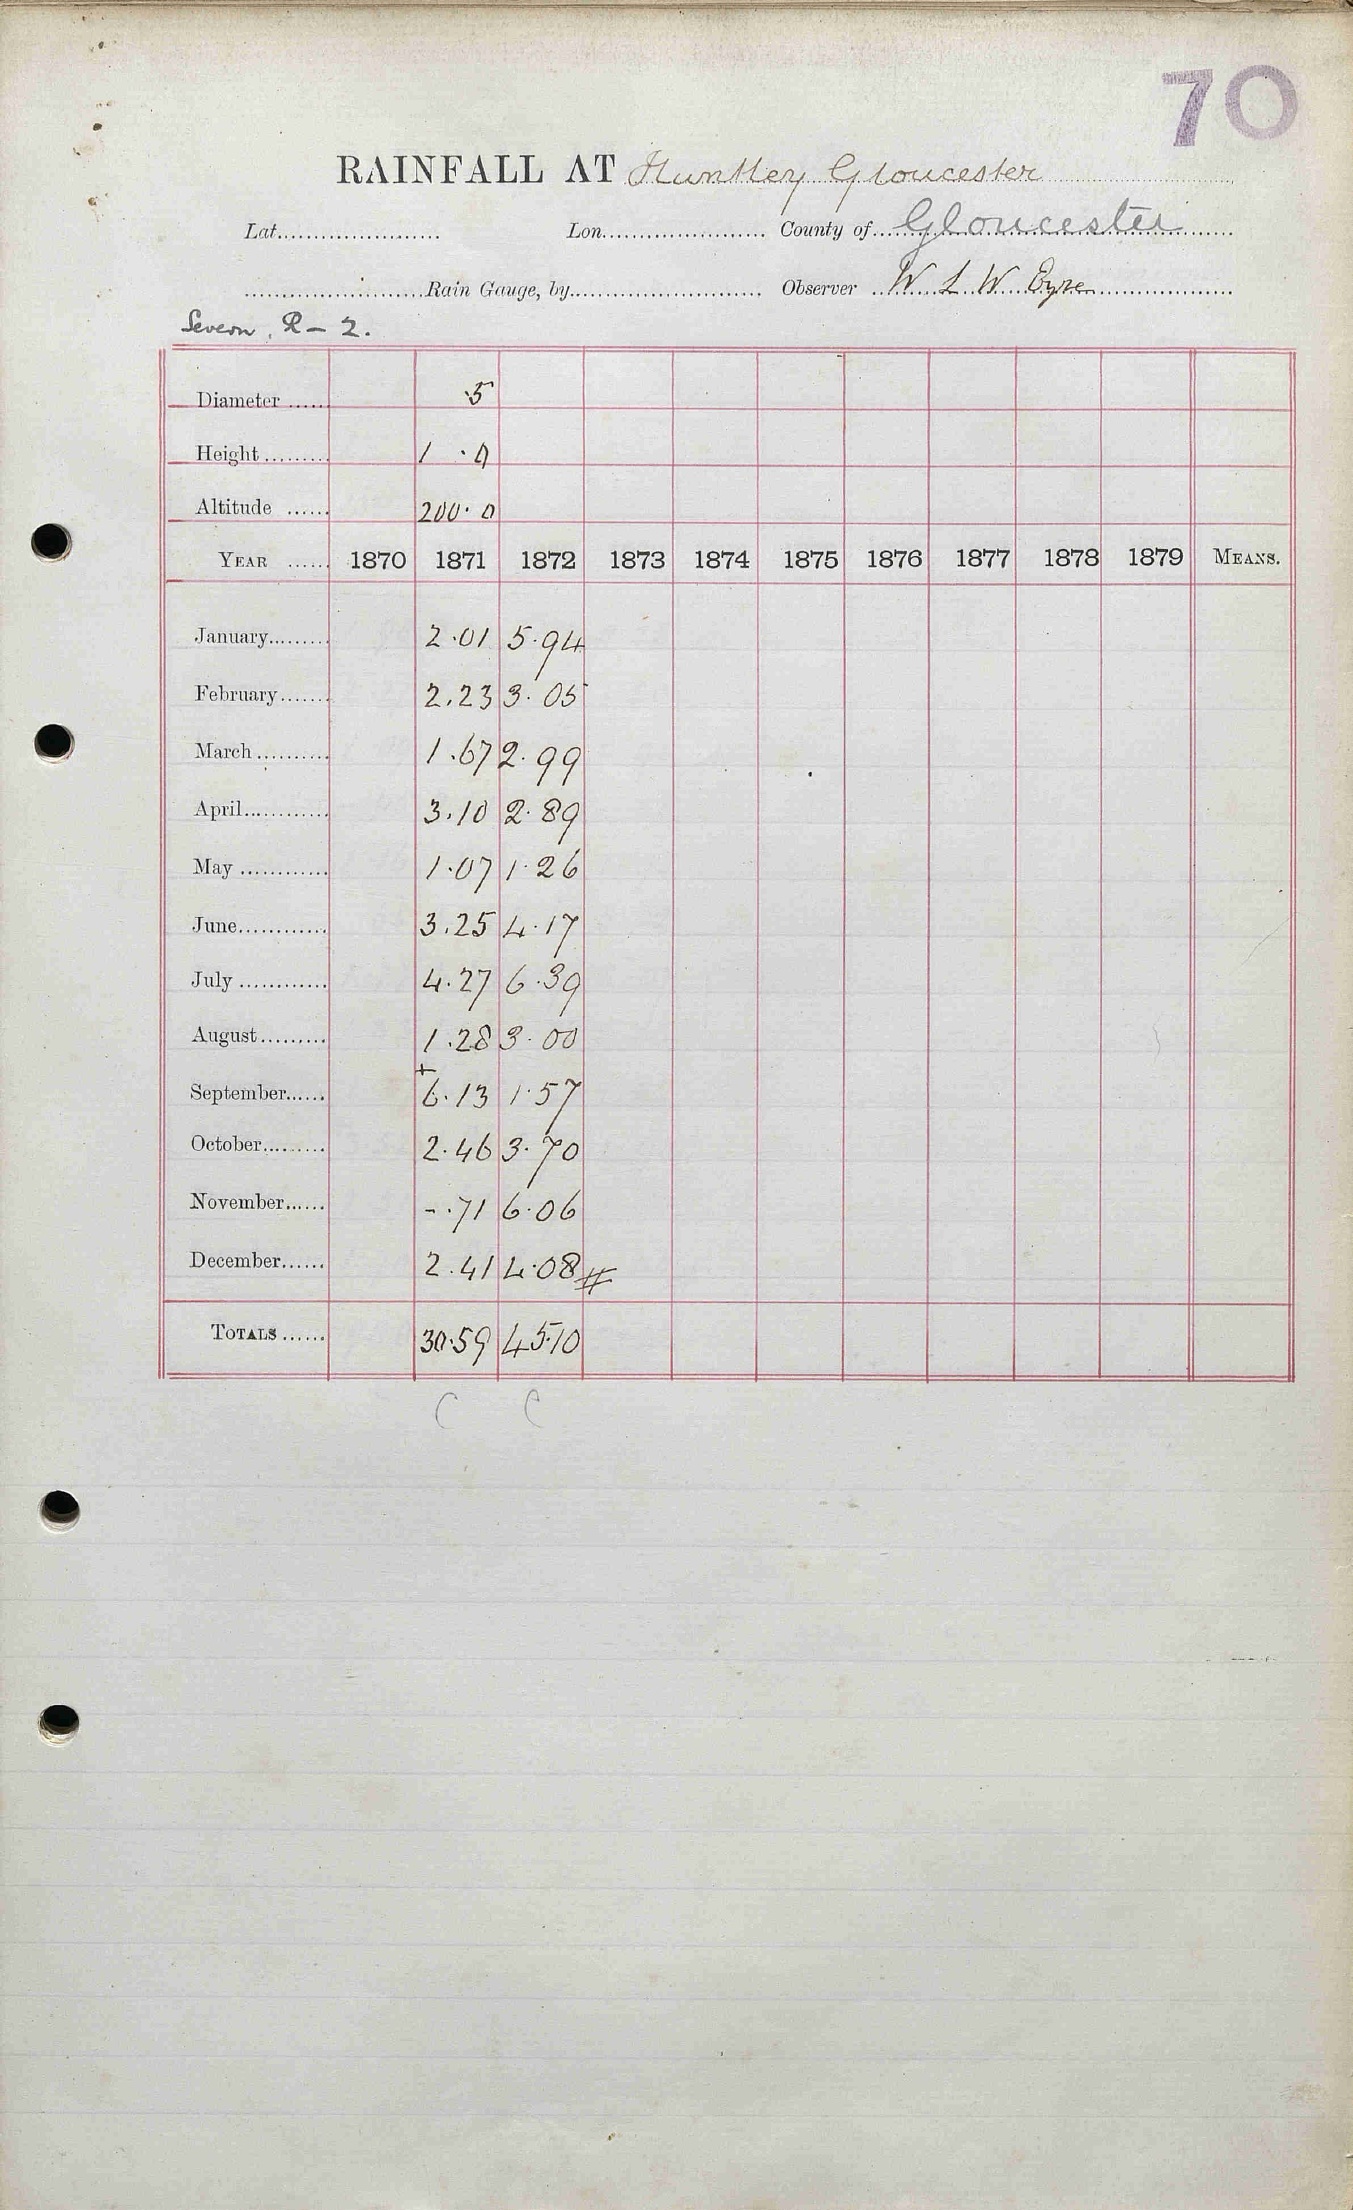 70
RAINFALL AT Huntley Gloucester
Lat. Lon. County of Gloucester
Rain Gauge, by Observer W L W Eyre
Severn, R - 2.
Diameter 5
Height 1 . 0
Altitude 200. 0
YEAR 1870 1871 1872 1873 1874 1875 1876 1877 1878 1879 MEANS.
January 2.01 5.94
February 2.23 3.05
March 1.67 2.99
April 3.10 2.89
May 1.07 1.26
June 3.25 4.17
July 4.27 6.39
August 1.28 3.00
+
September 6.13 1.57
October 2.46 3.70
November -.71 6.06
December 2.41 4.08 #
TOTALS 30.59 45.10
C C